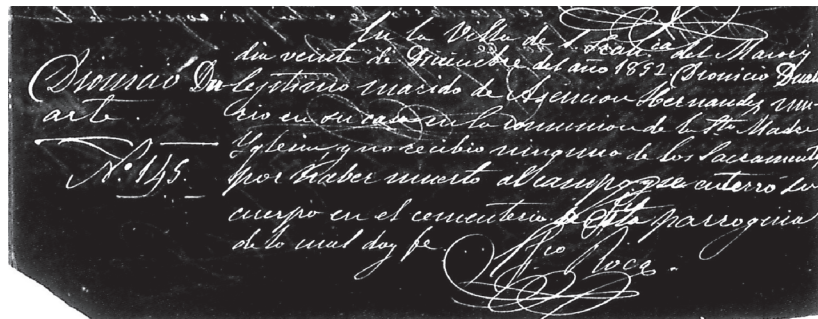 En la Villa de S. Franca del Maray
dia veinte de Diciembre del año 1892. Dionicio Duar
Dionicio Du legitimo marido de Asencion Hernandez mu-
arte. rio en su casa en la comunion de la Sta Madre
Yglesia, y no recibio ninguno de los Sacramentos
Nº 145. por haber muerto al campo y se enterró su
cuerpo en el cementerio de esta parroquia
de lo cual doy fe.